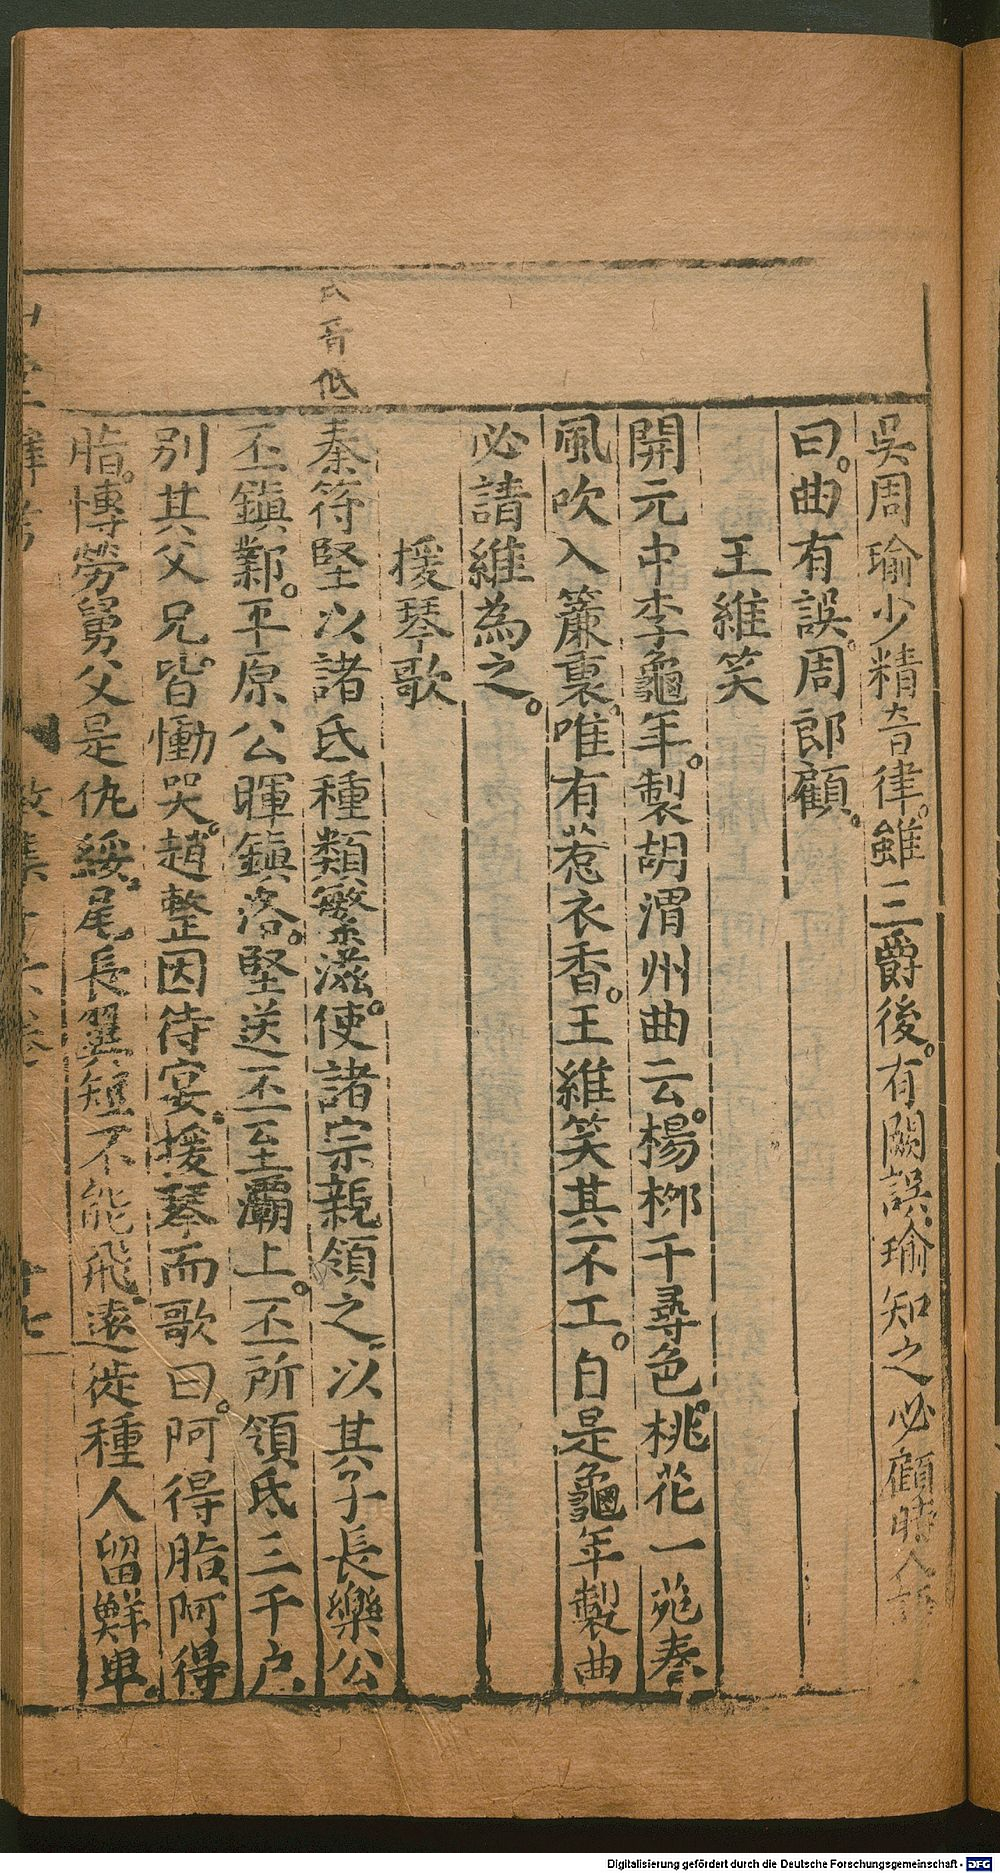 吳周瑜少精音律。雖三爵後。有闕誤瑜知之必顧時人語
曰。曲有誤。周郎顧。
王維笑
開元中李龜年。製胡渭州曲云。楊柳千尋色。桃花一苑奏
風吹入簾裏。唯有惹衣香。王維笑其不工。自是龜年製曲
必請維為之。
援琴歌
氐音低
秦符堅以諸氐種類繁滋。使諸宗親領之。以其子長樂公
丕鎮鄴。平原公暉鎮洛。堅送丕至灞上。丕所領氐三千戶
別其父兄。皆慟哭。趙整因待宴。援琴而歌曰。阿得脂阿得
脂。慱勞舅父是仇綏。尾長翼短不能飛。遠徙種人留鮮卑。
Digitalisierung gefördert durch die Deutsche Forschungsgemeinschaft - DFG